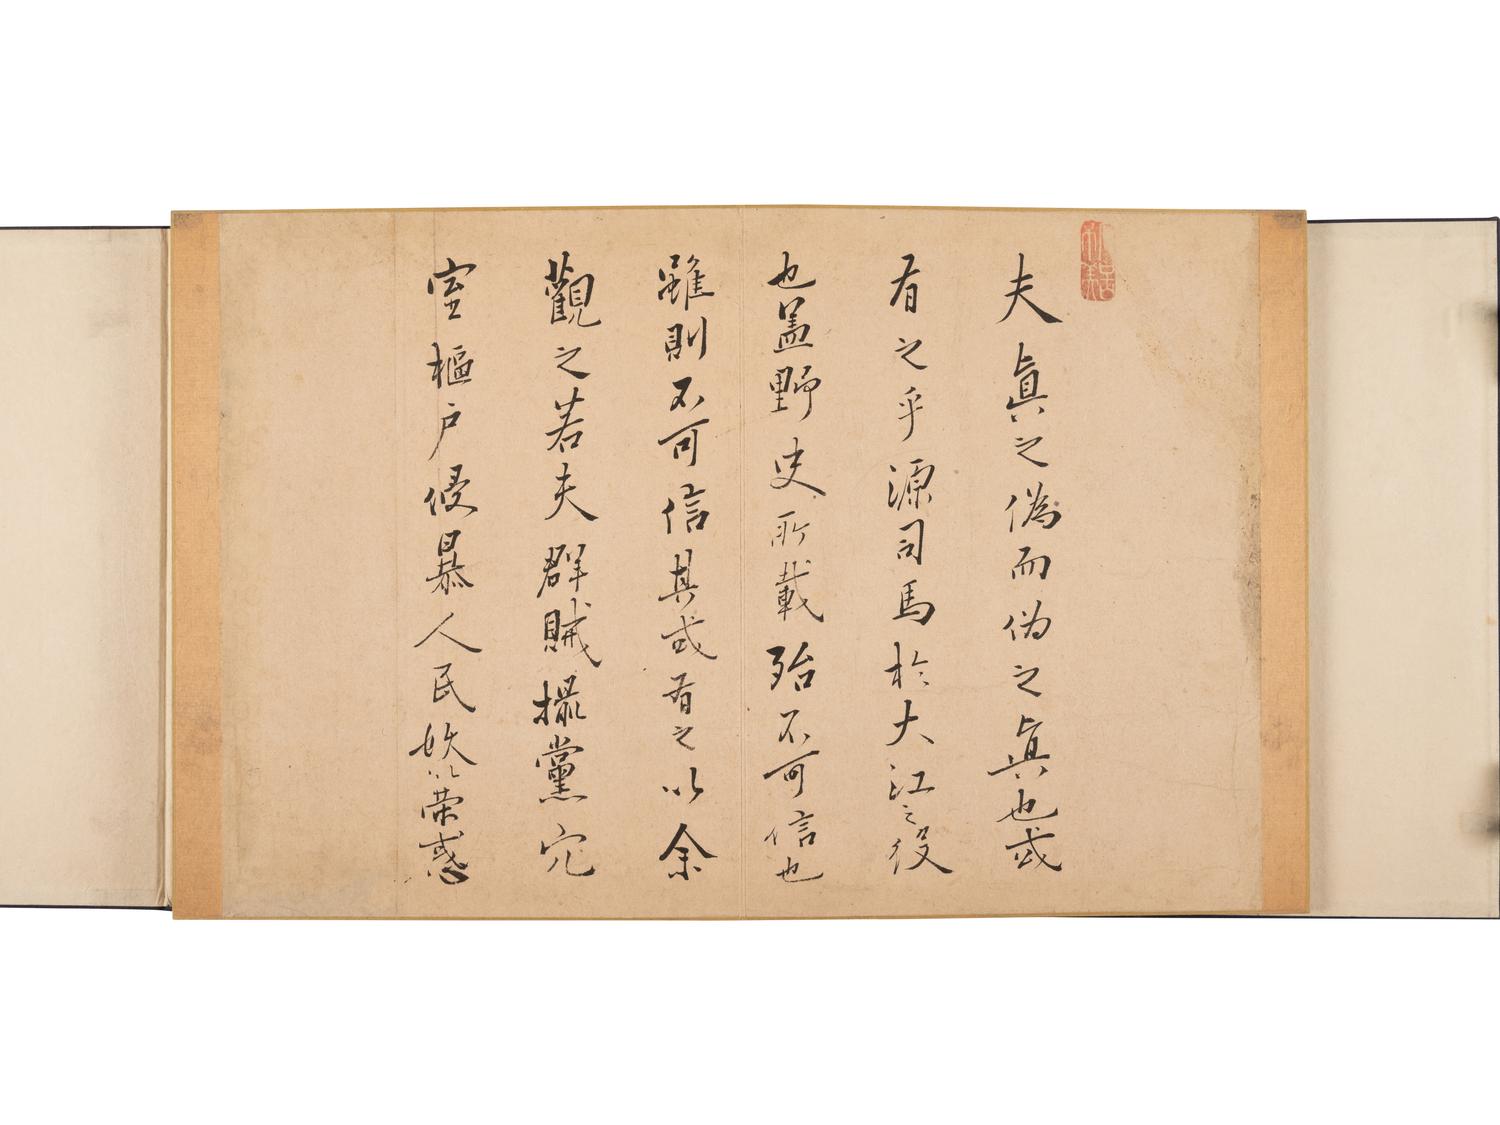 夫眞之僞而伪之眞也或
有之乎源司馬於大江之役
也盖野史所載殆不可信也
雖則不可信其或有之以余
觀之若夫群賊撮黨穴
室樞户侵暴人民妖以荣惑